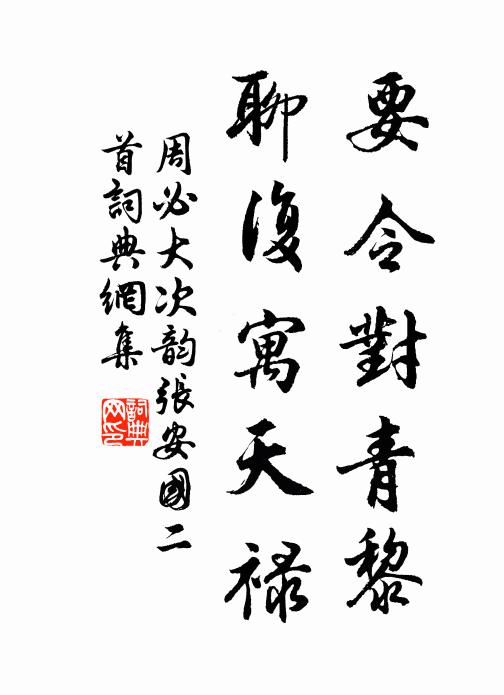 要令對青黎
聊復寓天禄
周必大次韵張安國二
首詞典網集
詞典
网印